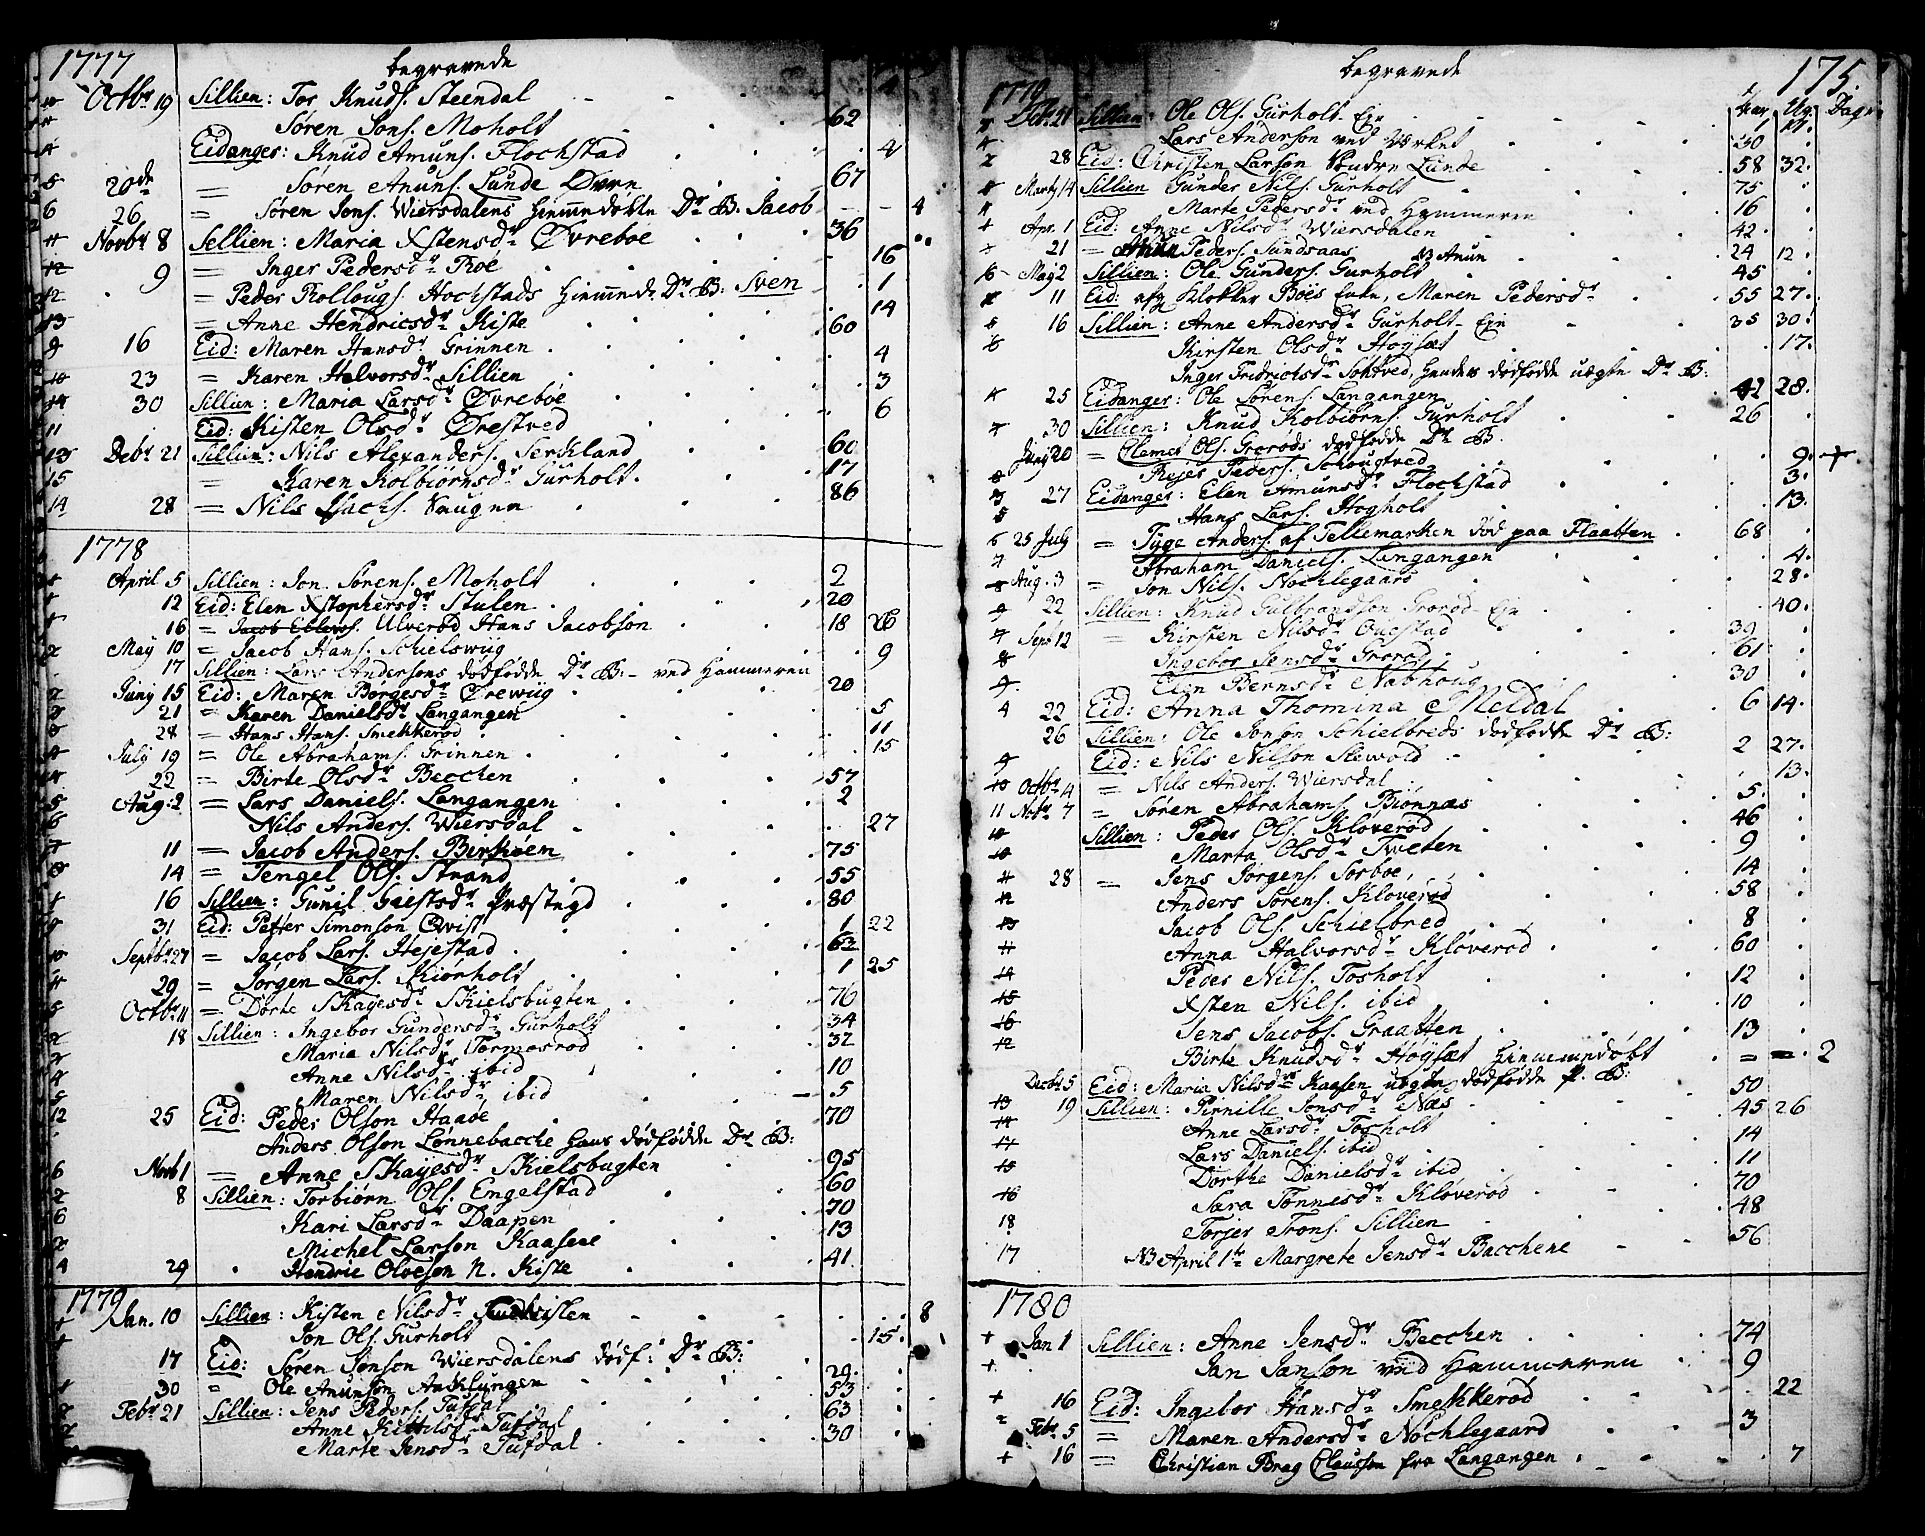 1777 begravede
Octbr 19 Sillien: Tor Knuds. Steendal
Søren Jons. Moholt 62
Eidanger: Knud Amuns. Flochstad 4
20de = Søren Anuns. Lunde Øvre 67
26 = Søren Jons. Wiersdalens hiemmedøbte Dr B: Jacob 4
Novbr 8 Sillien: Maria Xstensdr Øvreboe 36
9 = Inger Pedersdr Roe 16
= Peder Rollougs. Hochstads hiemmed. Dr B: Sven 1
= Anne Hendricsdr Kiste 14
16 Eid: Maren Hansdr Grinnen 60
23 = Karen Halvorsdr Sillien 4
30 Sillien: Maria Larsdr Øvreboe 3
Eid: Kisten Olsdr Ørestved 6
Debr 21 Sillien: Nils Alexanders. Serkland 60
= Karen Kolbiørnsdr Gurholt 17
28 = Nils Isachs. Saugen 86
1778
April 5 Sillien: Jon Sørens. Moholt 2
12 Eid: Elen Xstophersdr Stulen 20
16 = Ulverød Hans Jacobson 18 26
May 10 = Jacob Hans. Schielswiig 9
17 Sillien: Lars Andersons dødfødde Dr B: - ved Hammeren
Juny 15 Eid: Maren Borgesdr Ørewiig 20
21 = Karen Danielsdr Langangen 5
28 = Hans Hans. Smekkerød 11
July 19 = Ole Abrahams. Grinnen 15
22 = Birte Olsdr Becchen 57
Aug: 2 = Lars Daniels. Langangen 2
Nils Anders. Wiersdal 27
11 = Jacob Anders. Birkøen 75
14 = Tengel Ols. Strand 55
16 Sillien: Gunil Giestsdr Præstegd 80
31 Eid: Petter Simonson Qvist 1 22
Septbr 27 = Jacob Lars. Hejestad 62
29 = Jørgen Lars. Kiørholt 1 25
Octbr 11 = Dorte SKayesdr SKielsbugten 76
18 Sillien: Ingebor Gundersdr Gurholt 34
Maria Nilsdr Tormosrød 32
Anne Nilsdr ibid 10
Maren Nilsdr ibid 5
25 Eid: Peder Olson Haaøe 70
Anders Olson Lønnebacche hans dødfødde Dr B:
Novb 1 = Anne SKayesdr SKielsbugten 95
8 Sillien: Torbiørn Ols. Engelstad 60
Kari Larsdr Daapen 70
Michel Larson Kaasene 13
29 Hendric Olveson N. Kiste 41
1779
Jan. 10 Sillien: Kisten Nilsdr 8
Jon Ols. Gurholt 15
17 Eid: Søren Jonson Wiersdalens dødf: Dr B:
30 = Ole Anunson Aaklungen 29
Febr 21 Sillien: Jens Peders. Tufdal 53
Anne Kittilsdr Tufdal 63
Marte Jensdr Tufdal 30
1779 begravede 175
Aar Ug. Dage
Feb. 21 Sillien: Ole Ols. Gurholt Eje 1 17
Lars Anderson ved Verket 30
28 Eid: Christen Larson Søndre Lunde 58 32
Marty 14 Sillien Gunder Nils. Gurholt 75
Marte Pedersdr ved Hammeren 16
Apr. 1 Eid: Anne Nilsdr Wiersdalen 42
21 = Peders. Sundsaas NB Anun 24 12
May 2 Sillien: Ole Gunders. Gurholt 45
11 Eid: afg Klokker Boës Enke, Maren Pedersdr 55 27
16 Sillien: Anne Andersdr Gurholt Eje 35 30
Kirsten Olsdr Hogsæt 17
Inger Fridrichsdr Sohtved, hendes dødfødde uægte Dr B:
25 Eidanger: Ole Sørens. Langangen 42 28
30 Sillien: Knud Kolbiørns. Gurholt 26
Juny 20 = Clemet Ols. Grorøds dødfødde Dr B.
Rejer Peders. Schougtved 9
27 Eidanger: Elen Amunsdr Flochstad 3
Hans Lars. Hogholt 13
25 July = Tyge Anders. af Tellemarken død paa Flaatten 68
Abraham Daniels. Langangen 4
Aug. 3 = Jon Nils. Nochlegaard 28
22 Sillien: Knud Gulbrandson Grorød Eje 40
Sept 12 = Kirsten Nilsdr Ouestad 39
Ingebor Jensdr Grorød 61
Elen Bernsdr Nabhoug 30
22 Eid: Anna Thomina Meldal 6 14
26 Sillien: Ole Jonson Schielbreds dødfødde Dr B:
Eid: Nils Nilson Slewold 2 27
Octbr 4 = Nils Anders. Wiersdal 13
Novbr 7 = Søren Abrahams. Biønnæs 5
Sillien: Peder Ols. Kloverød 46
Marta Olsdr Tweten 9
28 = Jens Jorgens. Sorboe 14
Anders Sørens. Kloverød 58
Jacob Ols. Schielbred 8
Anna Halvorsdr Kløverød 60
Peder Nils. Tosholt 12
Xsten Nils. ibid 10
Jens Jacobs. Graatten 13
Birte Knudsdr Høysæt hiemmedøbt = = 2
Decbr 5 Eid: Maria Nilsdr Kaasen uægte dødfødde P. B:
19 Sillien: Pirnille Jonsdr Næs 50
Anne Larsdr Tosholt 45 26
Lars Daniels. ibid 14
Dorthe Danielsdr ibid 11
Sara Tønnesdr Kløverød 70
Torjer Trons. Sillien 48
NB April 1te Margrete Jensdr Bacchene 56
1780
Jan 1 Sillien: Anne Jensdr Becchen 74
Jan Janson ved Hammeren 9
16 Eid: Ingebor Hansdr Smekkerød 22
Febr. 5 = Maren Andersdr Nochlegaard 3
16 = Christian Brag Clausson fra Langangen 7